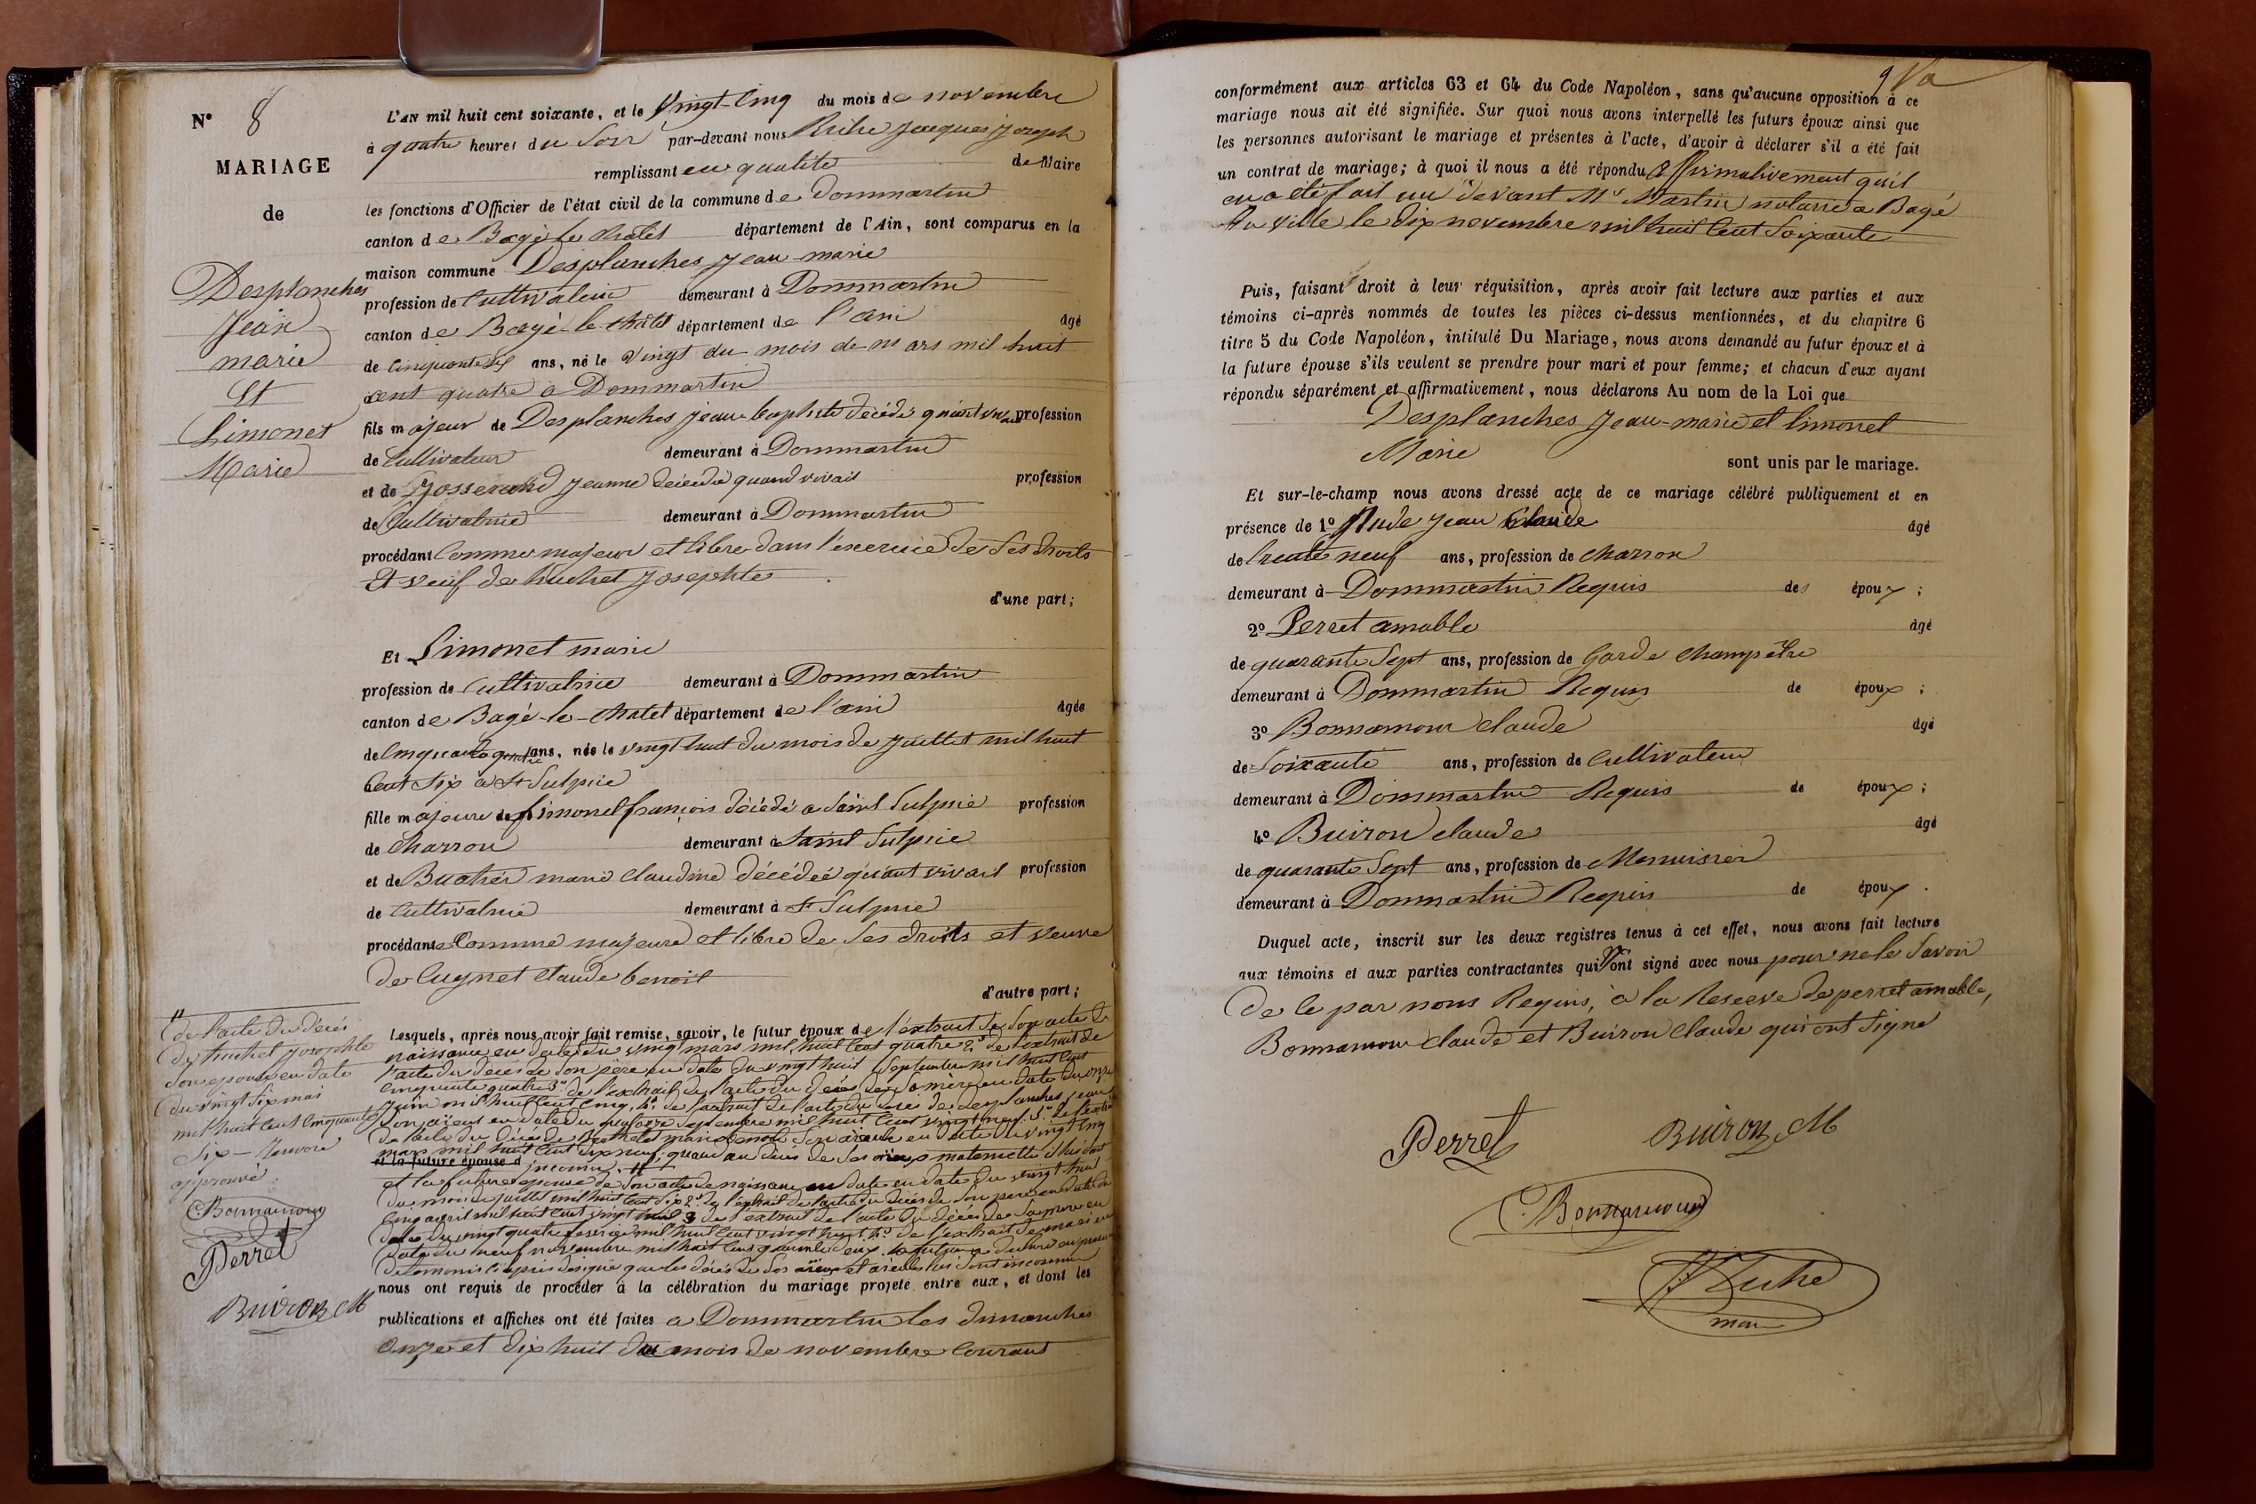 N° 8
MARIAGE
de
Desplanches
Jean
marie
Et
Limonet
Marie
L'AN mil huit cent soixante, et le Vingt-Cinq du mois de novembre
à quatre heures du Soir par-devant nous Jacques Joseph
remplissant en qualité de Maire
les fonctions d'Officier de l'état civil de la commune de Dommartin
canton de Bagé-le-Chatel département de l'Ain, sont comparus en la
maison commune Desplanches Jean-marie
profession de Cultivateur demeurant à Dommartin
canton de Bagé-le-chatel département de l'ain âgé
de Cinquante six ans, né le vingt du mois de mars mil huit
cent quatre a Dommartin
fils majeur de Desplanches Jean baptiste décédé profession
de Cultivateur demeurant à Dommartin
et de Josserand Jeanne décédée quand vivait profession
de Cultivatrice demeurant à Dommartin
procédant Comme majeur et libre dans l'exercice de ses droits
Et veuf de Josephte
d'une part;
Et Limonet marie
profession de Cultivatrice demeurant à Dommartin
canton de Bagé-le-chatel département de l'ain âgée
de Cinquante quatre ans, née le vingt huit du mois de Juillet mil huit
Cent Six a St Sulpice
fille majeure de Limonet françois décédé a Saint Sulpice profession
de Charron demeurant à Saint Sulpice
et de Buathier marie Claudine décédée quant vivait profession
de Cultivatrice demeurant à St Sulpice
procédante Comme majeure et libre de ses droits et veuve
de Cugnet Claude benoit
d'autre part;
de l'acte du décès
de Josephte
son epouse en date
du vingt Six mai
mil huit Cent Cinquante
Six – Renvoi
approuvé
C. Bonnamour
Perret
Buiron M
Lesquels, après nous avoir fait remise, savoir, le futur époux de l'extrait de Son acte de
naissance en date du vingt mars mil huit Cent quatre 2° de l'extrait de
l'acte du décès de Son père en date du vingt huit Septembre mil huit Cent
Cinquante quatre 3° de l'extrait de l'acte du décès de Sa mère en date du onze
Juin mil huit Cent Cinq, 4° de l'extrait de l'acte du décès de Desplanches Jean
Son aïeul en date du quatorze Septembre mil huit Cent vingt neuf 5° de l'extrait
de l'acte du décès de marie Son aïeule en date du vingt Cinq
mars mil huit Cent dix neuf, quant au décès de Ses aïeux maternelle
et la future épouse d inconnu.
et la future epouse de Son acte de naissance en date du vingt huit
du mois de Juillet mil huit Cent Six 2° de l'extrait de l'acte du décès de Son père en date du
Cinq avril mil huit Cent vingt 3° de l'extrait de l'acte du décès de Sa mère en
date du vingt quatre mil huit Cent vingt 4° de l'extrait de
date du neuf novembre mil huit Cent quarante deux
que les décès de Ses aïeux et aïeules lui sont inconnus
nous ont requis de procéder à la célébration du mariage projeté entre eux, et dont les
publications et affiches ont été faites a Dommartin les dimanches
Onze et dix huit du mois de novembre Courant
9
conformément aux articles 63 et 64 du Code Napoléon, sans qu'aucune opposition à ce
mariage nous ait été signifiée. Sur quoi nous avons interpellé les futurs époux ainsi que
les personnes autorisant le mariage et présentes à l'acte, d'avoir à déclarer s'il a été fait
un contrat de mariage; à quoi il nous a été répondu affirmativement qu'il
en a été fait un devant Me Martin notaire a Bagé
la ville le dix novembre mil huit Cent Soixante
Puis, faisant droit à leur réquisition, après avoir fait lecture aux parties et aux
témoins ci-après nommés de toutes les pièces ci-dessus mentionnées, et du chapitre 6
titre 5 du Code Napoléon, intitulé Du Mariage, nous avons demandé au futur époux et à
la future épouse s'ils veulent se prendre pour mari et pour femme; et chacun d'eux ayant
répondu séparément et affirmativement, nous déclarons Au nom de la Loi que
Desplanches Jean-marie et limonet
Marie sont unis par le mariage.
Et sur-le-champ nous avons dressé acte de ce mariage célébré publiquement et en
présence de 1° Jean Claude âgé
de trente neuf ans, profession de charron
demeurant à Dommartin Requis des époux;
2° Perret amable âgé
de quarante Sept ans, profession de Garde Champêtre
demeurant à Dommartin Requis de époux;
3° Bonnamour Claude âgé
de Soixante ans, profession de Cultivateur
demeurant à Dommartin Requis de époux;
4° Buiron Claude âgé
de quarante Sept ans, profession de Menuisier
demeurant à Dommartin Requis de époux.
Duquel acte, inscrit sur les deux registres tenus à cet effet, nous avons fait lecture
aux témoins et aux parties contractantes qui n'ont signé avec nous pour ne le Savoir
de ce par nous Requis, a la Reserve de perret amable,
Bonnamour Claude et Buiron Claude qui ont Signé
Perret
Buiron M
C. Bonnamour
maire